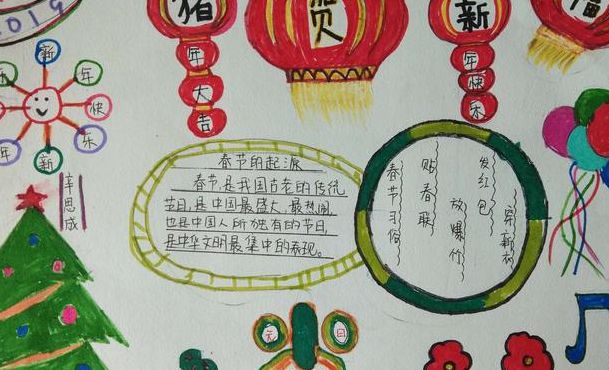 2019
猪
年
大
吉
贺
新
年
快
乐
福
新
年
快
乐
新
年
辛思成
春节的起源
春节,是我国古老的传统
节日,是中国最盛大、最热闹,
也是中国人所独有的节日,
是中华文明最集中的表现。
春节习俗
贴春联
放爆竹
发红包
穿新衣
元旦